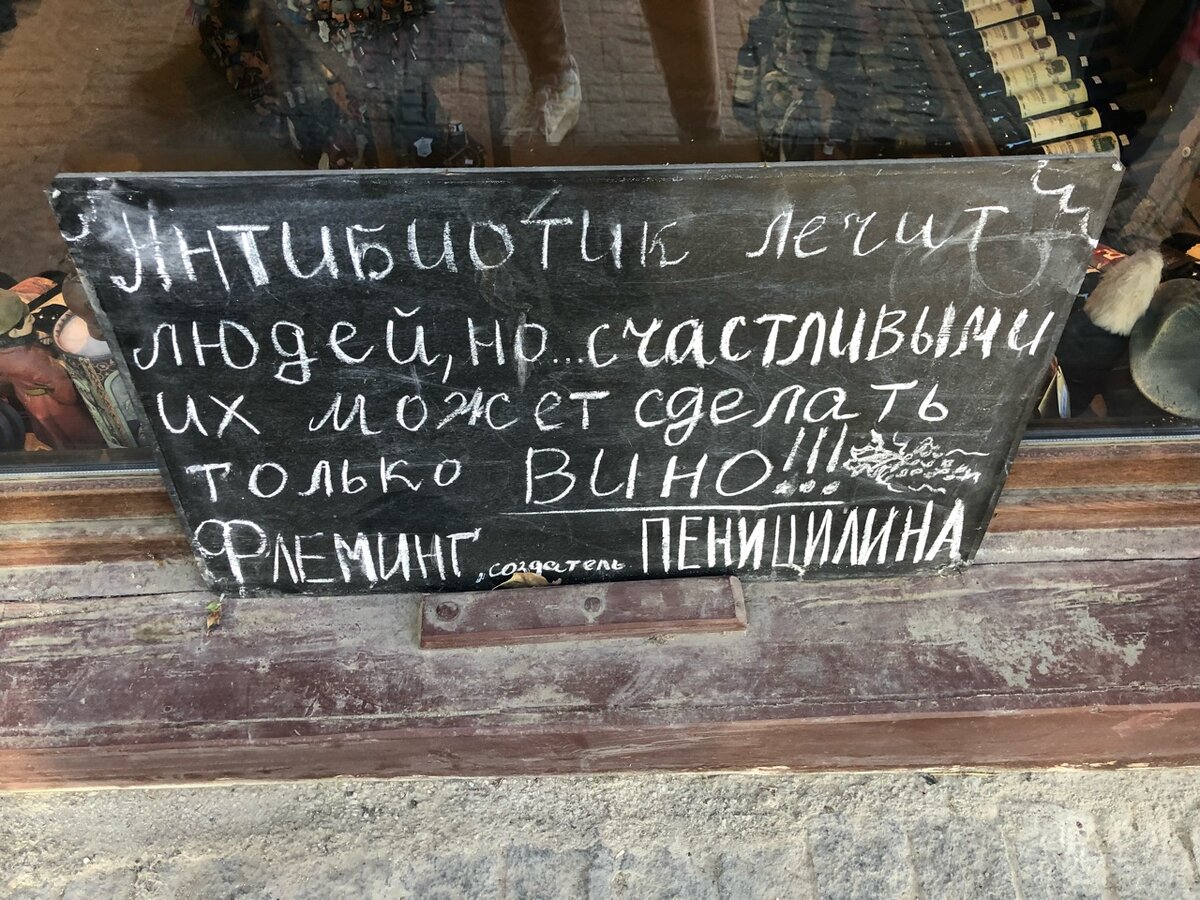 Антибиотик лечит
людей, но...счастливыми
их может сделать
только ВИНО!!!
Флеминг, создатель ПЕНИЦИЛИНА